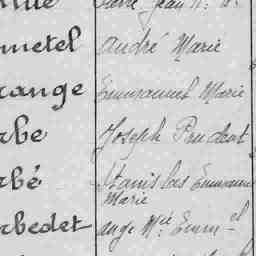 metel André Marie
range Emmanuel Marie
rbe Joseph Prudent
rbé Stanislas Emmanu
Marie
rbedet ange Mie Emm el